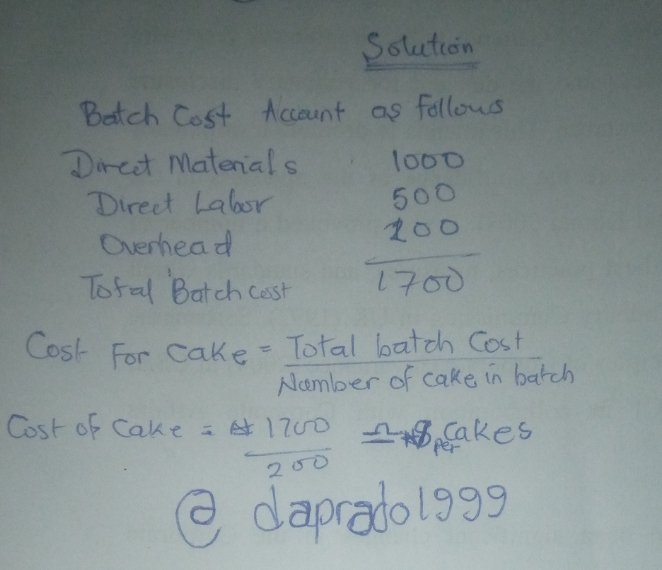 Solution
Batch Cost Account as follows
Direct Materials 1000
Direct Labor 500
Overhead 200
Total Batch cost 1700
Cost For Cake = Total batch Cost
Number of cake in batch
Cost of Cake = 1700 8 per cakes
200
@ daprado1999